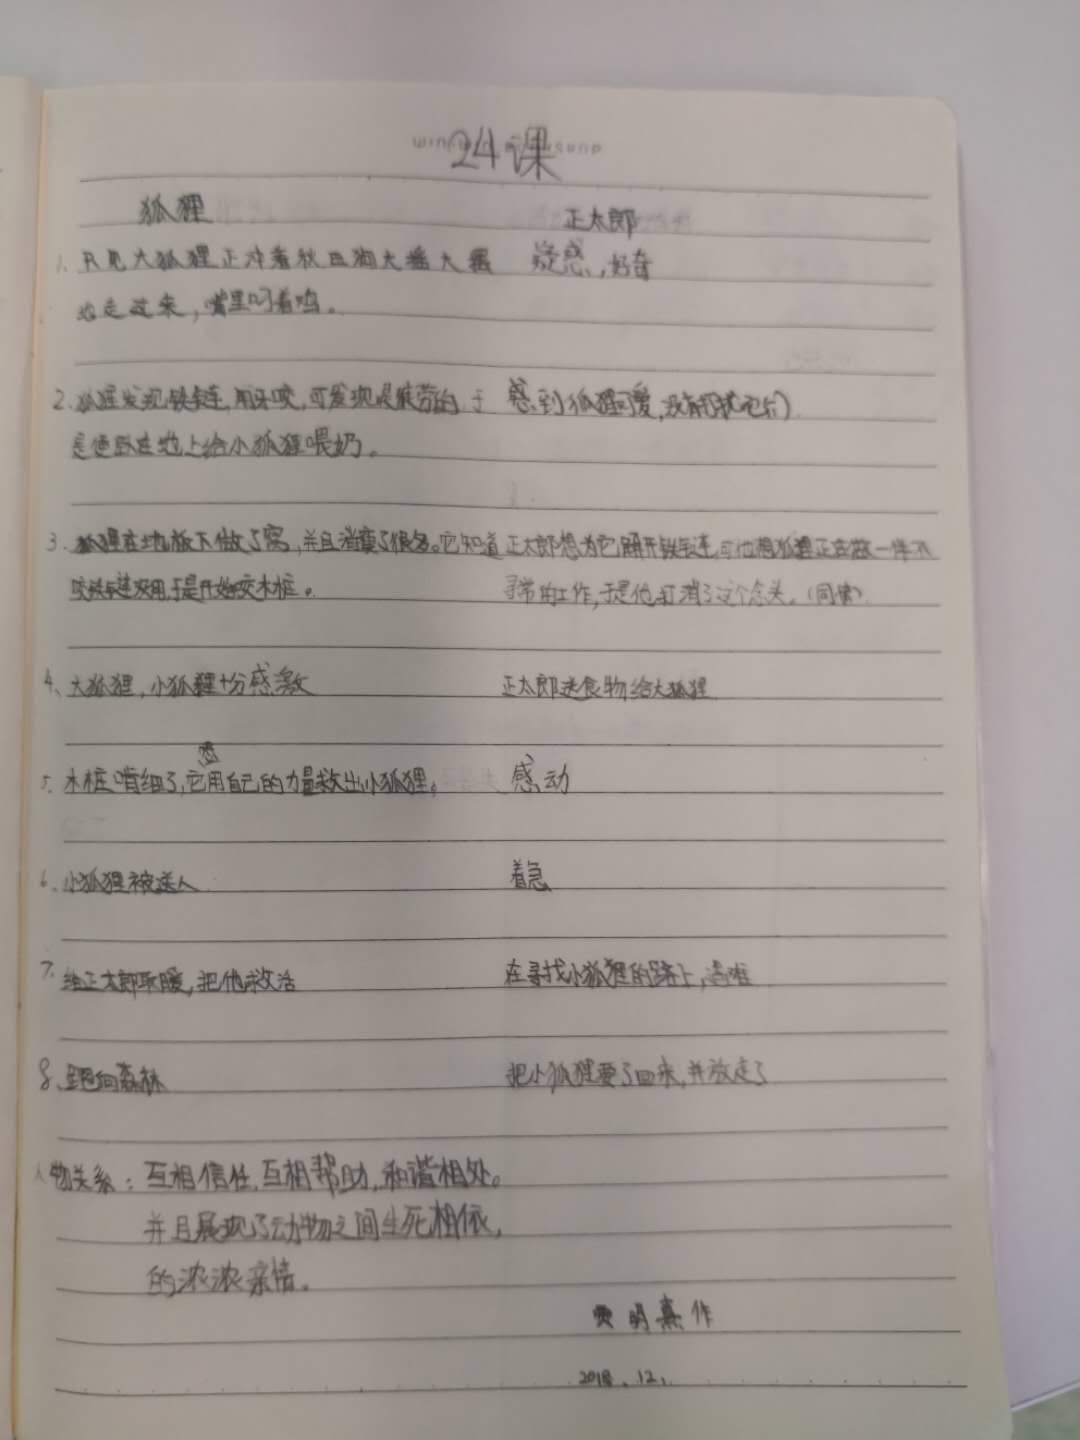 24课
狐狸 正太郎
1、只见大狐狸正冲着秋田狗大摇大摆 疑惑，好奇
地走过来，嘴里叼着鸡。
2、狐狸发现铁链，用牙咬，可发现是徒劳的，于 感到狐狸可爱，没有打扰它们
是便卧在地上给小狐狸喂奶。
3、狐狸在地板下做了窝，并且消瘦了很多。它知道 正太郎想为它解开铁链，可他想狐狸正在做一件不
咬铁链没用，于是开始咬木桩。 寻常的工作，于是他打消了这个念头。（同情）
4、大狐狸，小狐狸十分感激 正太郎送食物给大狐狸
5、木桩啃细了，它用自己的力量救出小狐狸， 感动
6、小狐狸被送人 着急
7、给正太郎取暖，把他救活 在寻找小狐狸的路上，遇难
8、跑向森林 把小狐狸要了回来，并放走了
人物关系：互相信任，互相帮助，和谐相处。
并且展现了动物之间生死相依，
的浓浓亲情。
明熹作
2018.12.